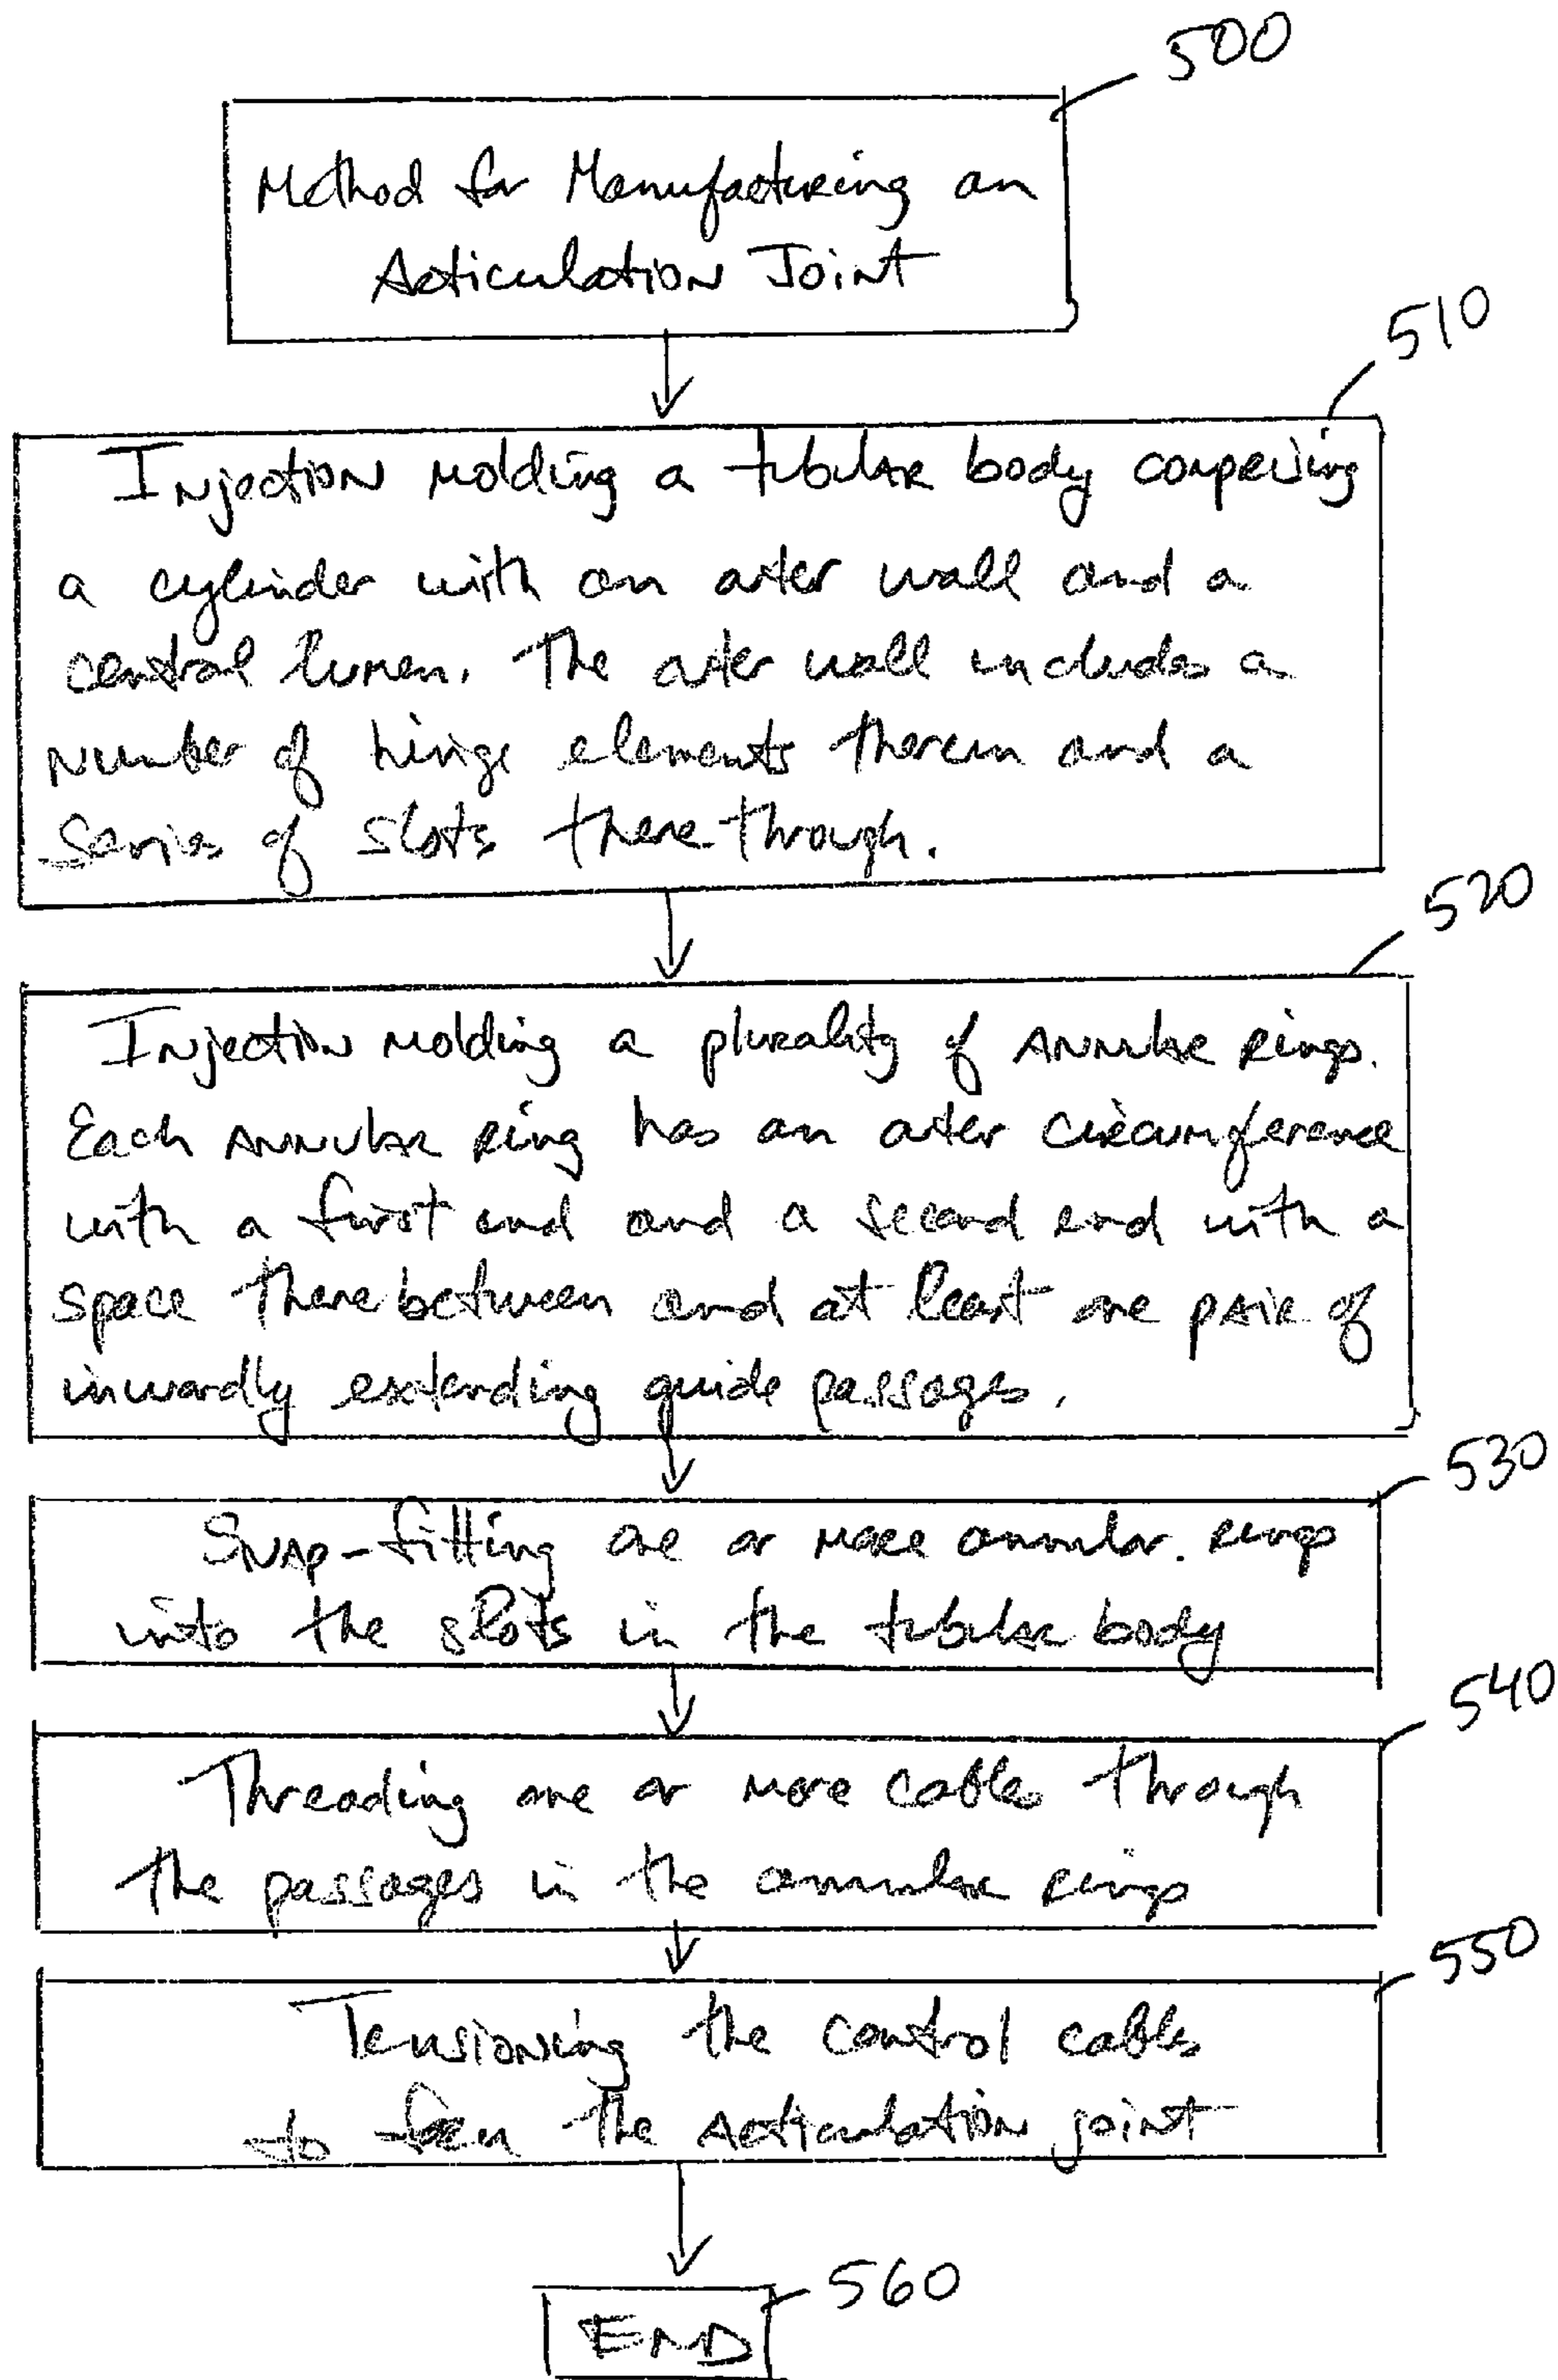 500
Method for Manufacturing an
Articulation Joint
510
Injection molding a tubular body comprising
a cylinder with an outer wall and a
central lumen. The outer wall includes a
number of hinge elements therein and a
series of slots there through.
520
Injection molding a plurality of annular rings.
Each annular ring has an outer circumference
with a first end and a second end with a
space there between and at least one pair of
inwardly extending guide passages.
530
Snap-fitting one or more annular. rings
into the slots in the tubular body
540
Threading one or more cables through
the passages in the annular rings
550
Tensioning the control cables
to form the articulation joint
560
END